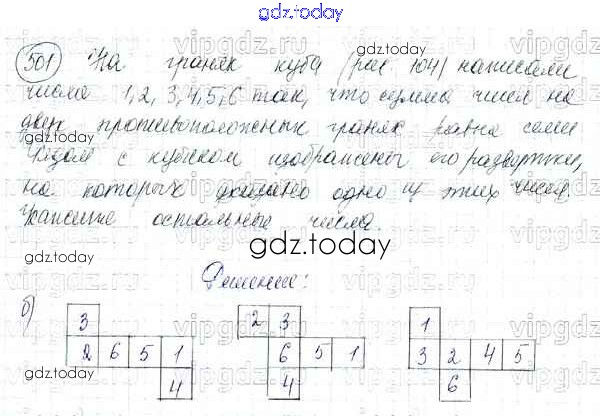 gdz.today
501 На гранях куба (рис. 104) написали
числа 1, 2, 3, 4, 5, 6 так, что сумма чисел на
двух противоположных гранях равна семи
Рядом с кубиком изображены его развертки,
на которых указано одно из этих чисел.
Укажите остальные числа.
gdz.today
Решение:
б)
3
2 6 5 1
4
2 3
6 5 1
4
1
3 2 4 5
6
gdz.today
vipgdz.ru